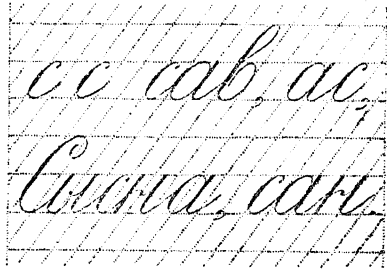 с с сав, ас,
Сысна, сан.